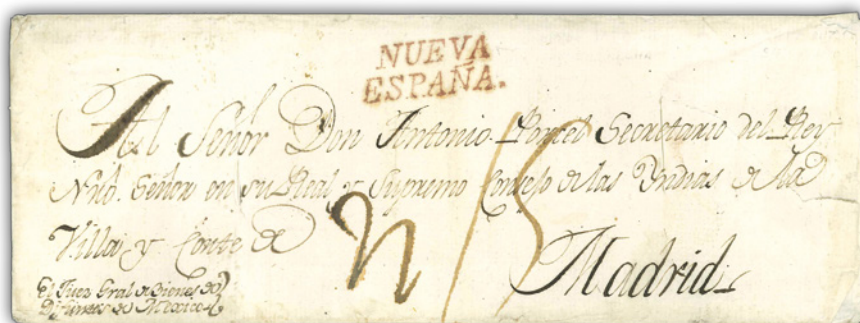 NUEVA
ESPAÑA.
Al Señor Don Antonio Porcel Secretario del Rey
Nrô. Señor en su Real y Supremo Consejo de las Yndias de la
Villa y Corte de
Madrid
El Juez Gral de Bienes de
Difuntos de Mexico